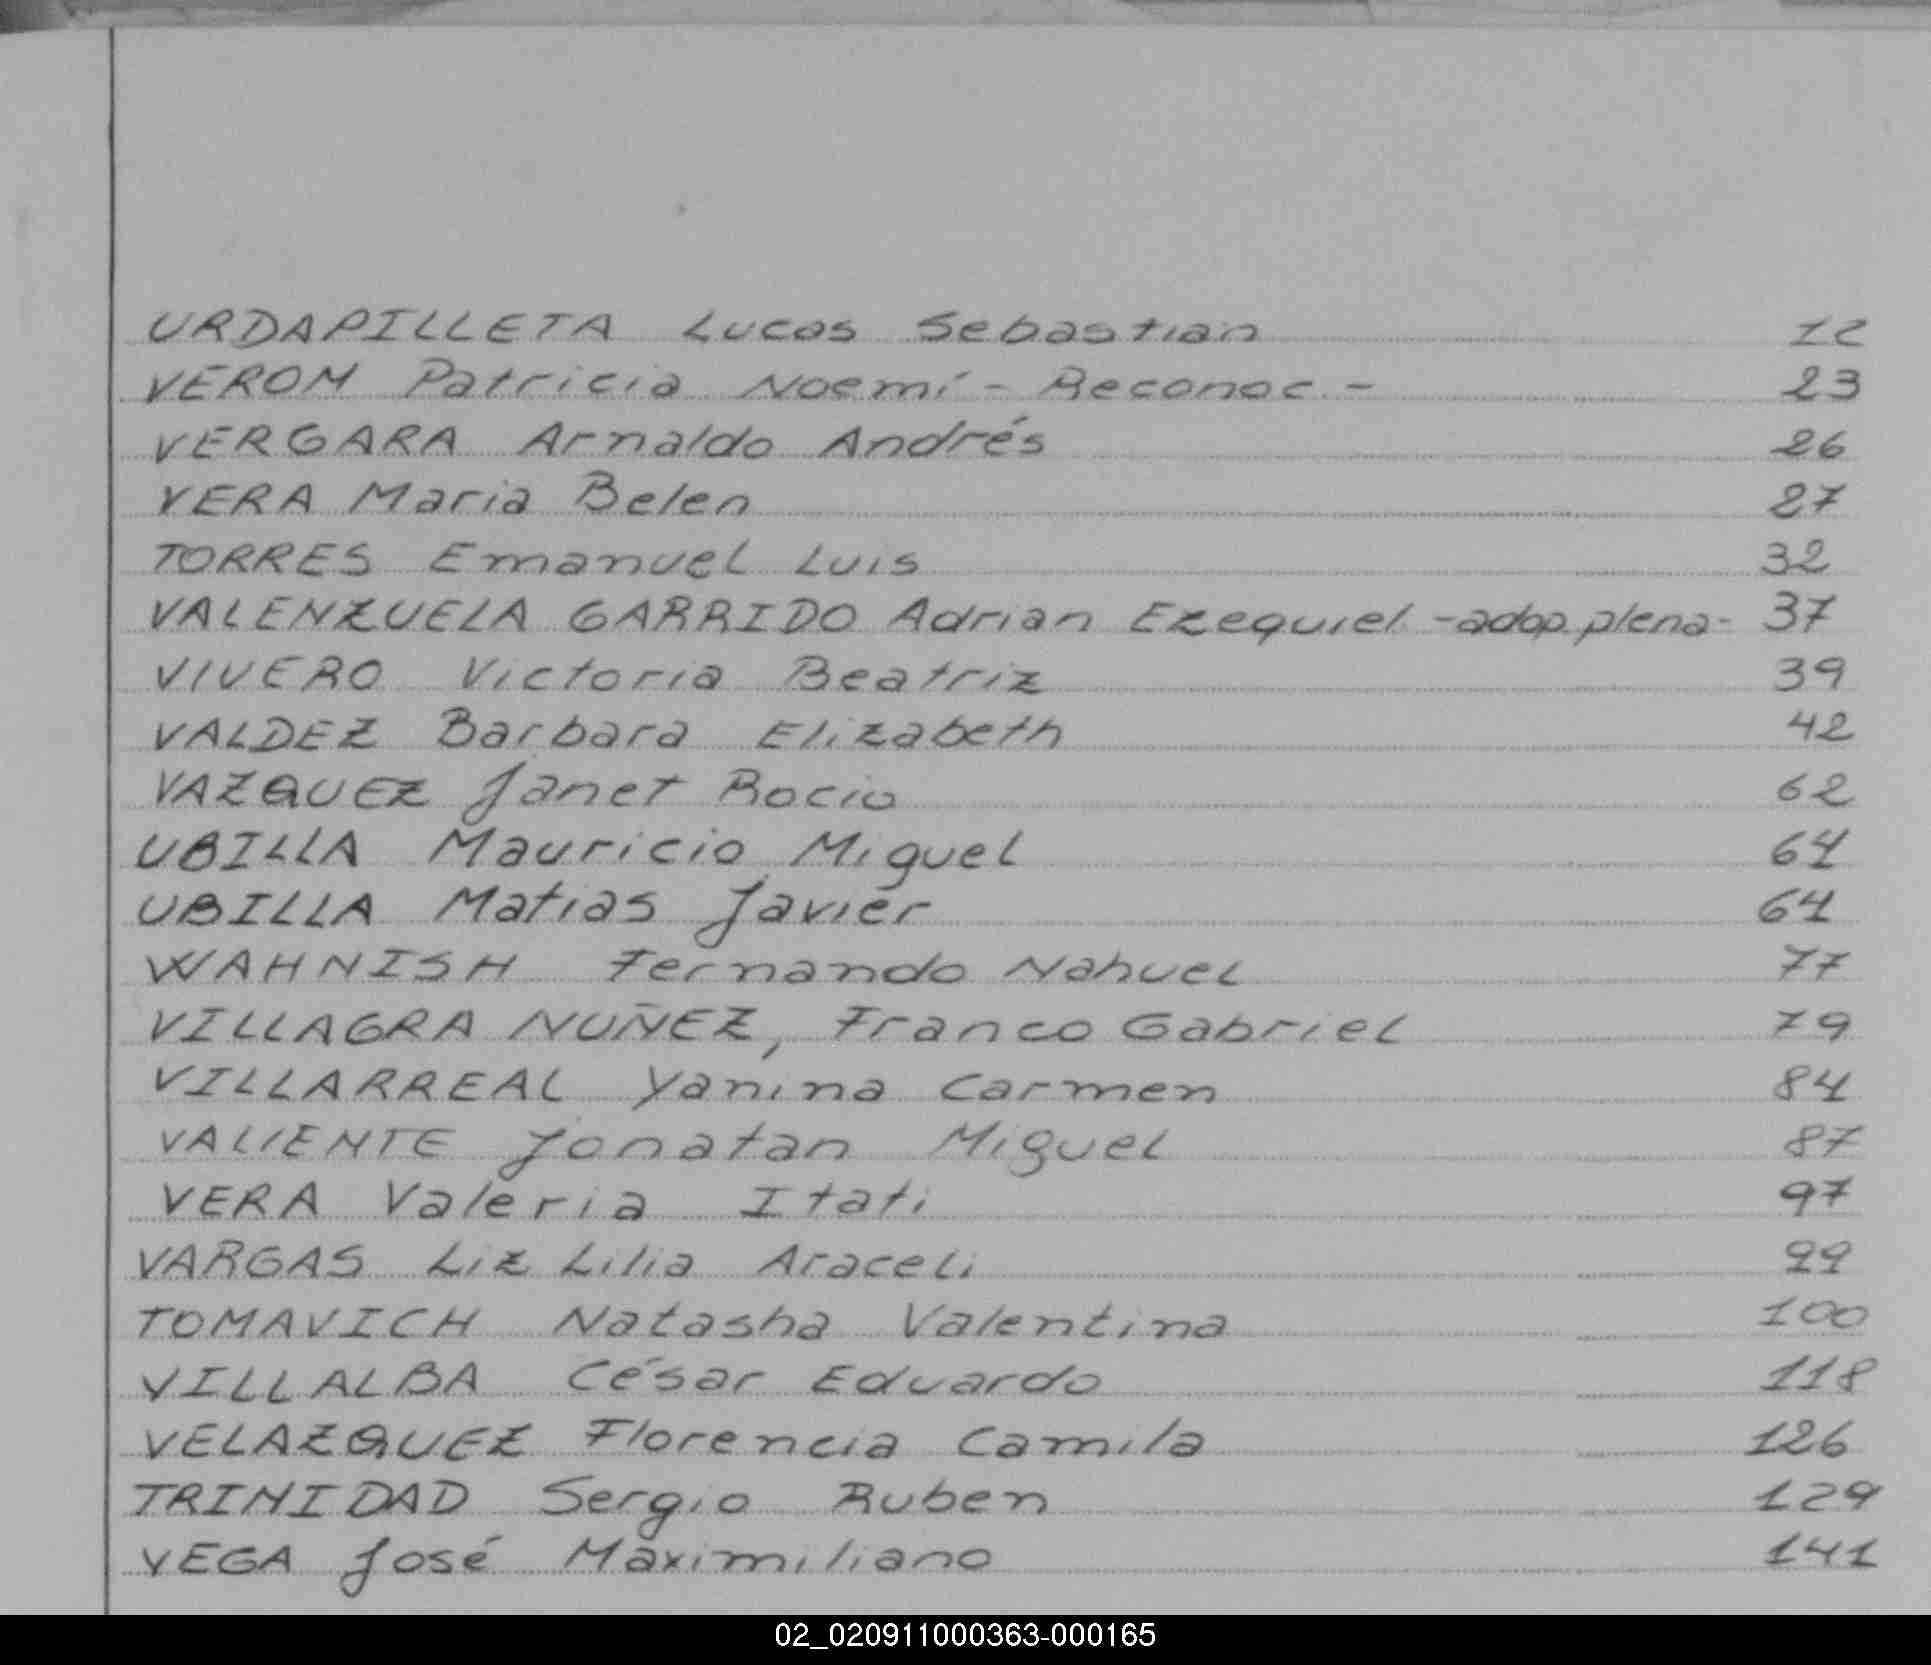 URDAPILLETA Lucas Sebastian 12
VEROM Patricia Noemí - Reconoc. - 23
VERGARA Arnaldo Andrés 26
VERA Maria Belen 27
TORRES Emanuel Luis 32
VALENZUELA GARRIDO Adrian Ezequiel -adop. plena- 37
VIVERO Victoria Beatriz 39
VALDEZ Barbara Elizabeth 42
VAZQUEZ Janet Rocio 62
UBILLA Mauricio Miguel 64
UBILLA Matias Javier 64
WAHNISH Fernando Nahuel 77
VILLAGRA NUÑEZ, Franco Gabriel 79
VILLARREAL Yanina Carmen 84
VALIENTE Jonatan Miguel 87
VERA Valeria Itati 97
VARGAS Liz Lilia Araceli 99
TOMAVICH Natasha Valentina 100
VILLALBA César Eduardo 118
VELAZQUEZ Florencia Camila 126
TRINIDAD Sergio Ruben 129
VEGA José Maximiliano 141
02_020911000363-000165